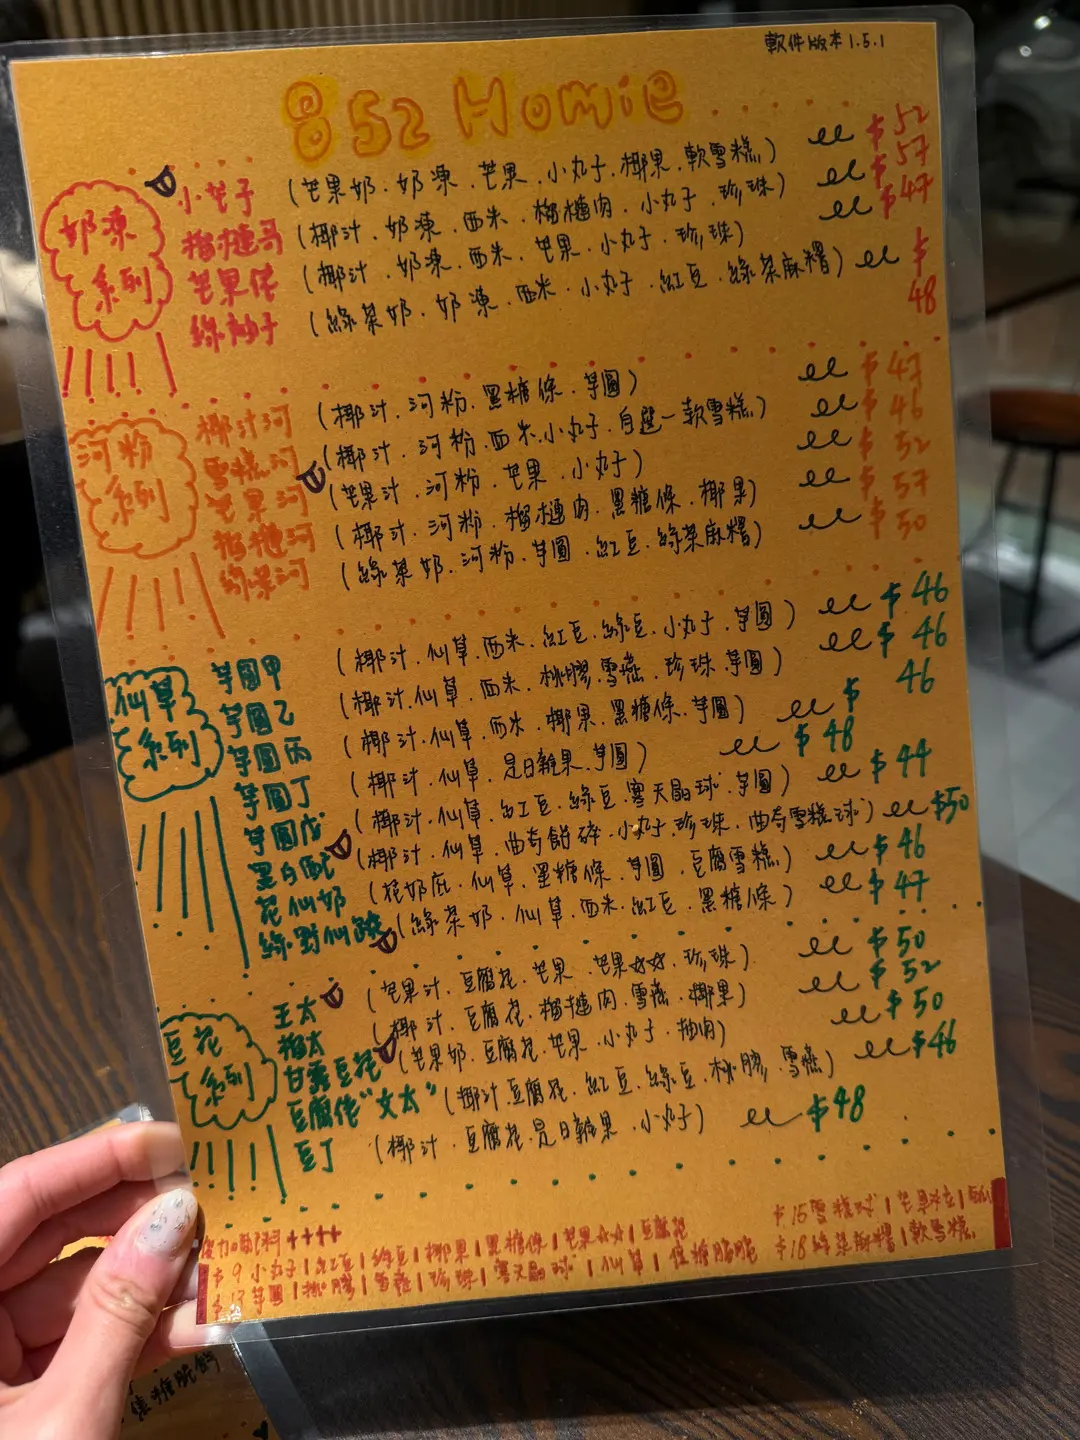 軟件版本1.5.1
852 Homie
奶凍系列
小芒子 (芒果奶.奶凍.芒果.小丸子.椰果.軟雪糕) $52
榴槤哥 (椰汁.奶凍.西米.榴槤肉.小丸子.珍珠) $57
芒果佬 (椰汁.奶凍.西米.芒果.小丸子.珍珠) $47
綠柚子 (綠茶奶.奶凍.西米.小丸子.紅豆.綠茶麻糬) $48
河粉系列
椰汁河 (椰汁.河粉.黑糖條.芋圓) $47
雪糕河 (椰汁.河粉.西米.小丸子.自選一軟雪糕) $46
芒果河 (芒果汁.河粉.芒果.小丸子) $52
榴槤河 (椰汁.河粉.榴槤肉.黑糖條.椰果) $57
綠茶河 (綠茶奶.河粉.芋圓.紅豆.綠茶麻糬) $50
仙草系列
芋圓甲 (椰汁.仙草.西米.紅豆.綠豆.小丸子.芋圓) $46
芋圓乙 (椰汁.仙草.西米.桃膠.雪燕.珍珠.芋圓) $46
芋圓丙 (椰汁.仙草.西米.椰果.黑糖條.芋圓) $46
芋圓丁 (椰汁.仙草.是日雜果.芋圓) $48
芋圓戊 (椰汁.仙草.紅豆.綠豆.寒天晶球.芋圓) $44
黑白配 (椰汁.仙草.曲奇餅碎.小丸子.珍珠.曲奇雪糕球) $50
花仙奶 (花奶底.仙草.黑糖條.芋圓.豆腐雪糕) $46
綠野仙蹤 (綠茶奶.仙草.西米.紅豆.黑糖條) $47
豆花系列
王太 (芒果汁.豆腐花.芒果.芒果☆☆.珍珠) $50
榴太 (椰汁.豆腐花.榴槤肉.雪燕.椰果) $52
甘露豆花 (芒果奶.豆腐花.芒果.小丸子.柚肉) $50
豆腐佬"文太" (椰汁.豆腐花.紅豆.綠豆.桃膠.雪燕) $46
豆丁 (椰汁.豆腐花.是日雜果.小丸子) $48
加配料++++
$9 小丸子|紅豆|綠豆|椰果|黑糖條|芒果☆☆|豆腐花
$13 芋圓|桃膠|雪燕|珍珠|寒天晶球|仙草|焦糖脆脆
$15 雪糕球|芒果
$18 綠茶麻糬|軟雪糕
焦糖脆